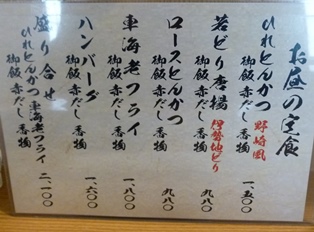 お昼の定食
ひれとんかつ 野崎風
御飯 赤だし 香物 一、五〇〇
若どり唐揚 伊勢地どり
御飯 赤だし 香物 九八〇
ロースとんかつ
御飯 赤だし 香物 九八〇
車海老フライ
御飯 赤だし 香物 一、八〇〇
ハンバーグ
御飯 赤だし 香物 一、六〇〇
盛り合せ
ひれとんかつ 車海老フライ
御飯 赤だし 香物 二、一〇〇